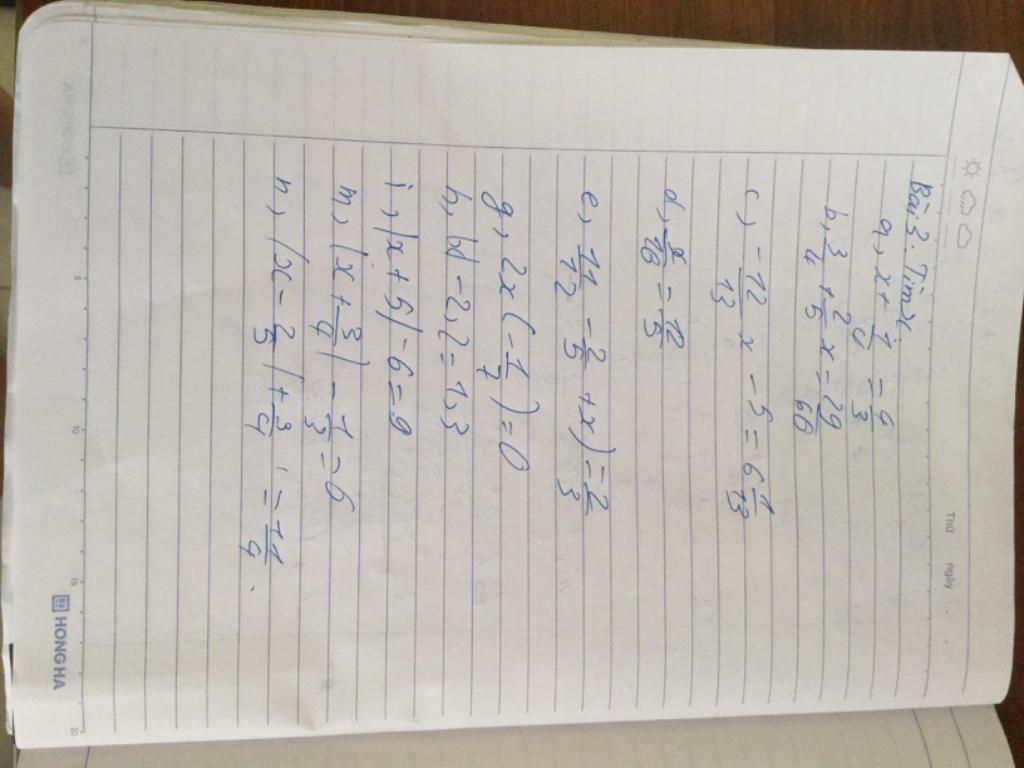 Thứ ngày
Bài 3. Tìm x
a, x + 1/4 = 4/3
b, 3/4 + 2/5 x = 29/60
c, -12/13 x - 5 = 6 1/13
d, x/16 = 12/5
e, 11/12 - 2/5 + x) = 2/3
g, 2x(-1/7) = 0
h, |x| - 2,2 = 1,3
i, |x + 5| - 6 = 9
m, |x + 3/4| - 1/3 = 6
n, |x - 2/5| + 3/4 = 11/4.
HONG HA
5
10
15
20